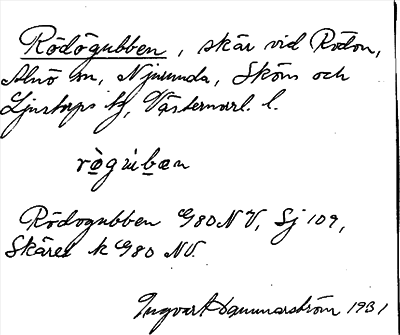 Rödögubben, skär vid Rödön,
Alnö sn, Njurunda, Sköns och
Ljustorps tg, Västernorrl. l.
rògu̇bæn
Rödogubben G80 NV, Sj 109,
Skäret k G80 NV.
Ingvar Hammarström 1931